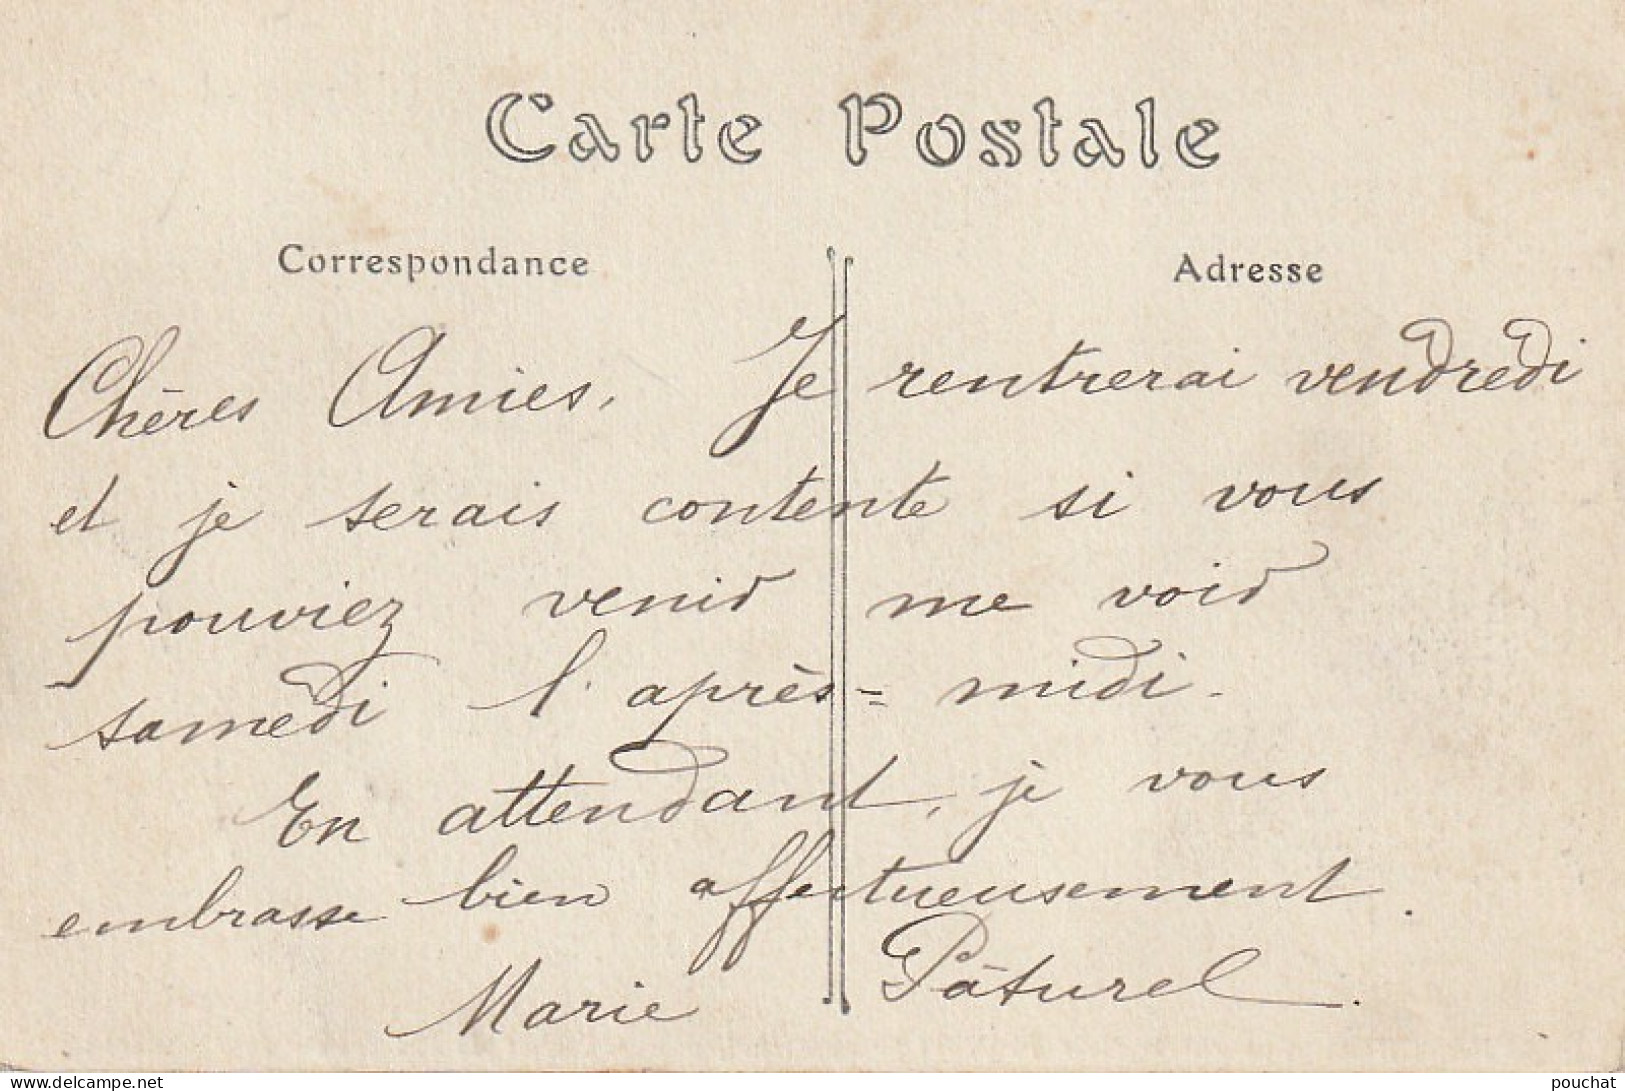 Carte Postale
Correspondance Adresse
Chères Amies, Je rentrerai vendredi
et je serais contente si vous
pouviez venir me voir
samedi l'après=midi.
En attendant, je vous
embrasse bien affectueusement.
Marie Pâturel.
www.delcampe.net pouchat